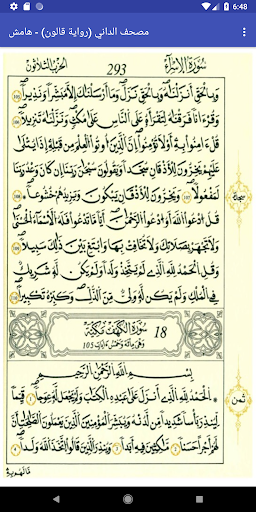 6:48
مصحف الداني (رواية قالون) - هامش
سُورَةُ الإِسْرَاء 293 الحزب الثلاثون
وَبِالْحَقِّ أَنزَلْنَاهُ وَبِالْحَقِّ نَزَلَ وَمَا أَرْسَلْنَاكَ إِلَّا مُبَشِّرًا وَنَذِيرًا
وَقُرْءَانًا فَرَقْنَاهُ لِتَقْرَأَهُ عَلَى النَّاسِ عَلَى مُكْثٍ وَنَزَّلْنَاهُ تَنزِيلًا
قُلْ ءَامِنُوا بِهِ أَوْ لَا تُؤْمِنُوا إِنَّ الَّذِينَ أُوتُوا الْعِلْمَ مِن قَبْلِهِ إِذَا يُتْلَى
عَلَيْهِمْ يَخِرُّونَ لِلْأَذْقَانِ سُجَّدًا وَيَقُولُونَ سُبْحَانَ رَبِّنَا إِن كَانَ وَعْدُ رَبِّنَا
لَمَفْعُولًا وَيَخِرُّونَ لِلْأَذْقَانِ يَبْكُونَ وَيَزِيدُهُمْ خُشُوعًا
سجدة
قُلُ ادْعُوا اللَّهَ أَوُ ادْعُوا الرَّحْمَنَ أَيًّا مَا تَدْعُوا فَلَهُ الْأَسْمَاءُ الْحُسْنَى
وَلَا تَجْهَرْ بِصَلَاتِكَ وَلَا تُخَافِتْ بِهَا وَابْتَغِ بَيْنَ ذَلِكَ سَبِيلًا
وَقُلِ الْحَمْدُ لِلَّهِ الَّذِي لَمْ يَتَّخِذْ وَلَدًا وَلَمْ يَكُن لَّهُ شَرِيكٌ
فِي الْمُلْكِ وَلَمْ يَكُن لَّهُ وَلِيٌّ مِّنَ الذُّلِّ وَكَبِّرْهُ تَكْبِيرًا
18 سُورَةُ الْكَهْفِ مَكِّيَّة
وَهْيَ مِائَة وَخَمْس ءَايَات 105
بِسْمِ اللَّهِ الرَّحْمَنِ الرَّحِيمِ
الْحَمْدُ لِلَّهِ الَّذِي أَنزَلَ عَلَى عَبْدِهِ الْكِتَابَ وَلَمْ يَجْعَل لَّهُ عِوَجًا
ثمن
قَيِّمًا لِّيُنذِرَ بَأْسًا شَدِيدًا مِّن لَّدُنْهُ وَيُبَشِّرَ الْمُؤْمِنِينَ الَّذِينَ يَعْمَلُونَ الصَّالِحَاتِ أَنَّ
لَهُمْ أَجْرًا حَسَنًا مَّاكِثِينَ فِيهِ أَبَدًا وَيُنذِرَ الَّذِينَ قَالُوا اتَّخَذَ اللَّهُ وَلَدًا
مَّا لَهُم بِهِ